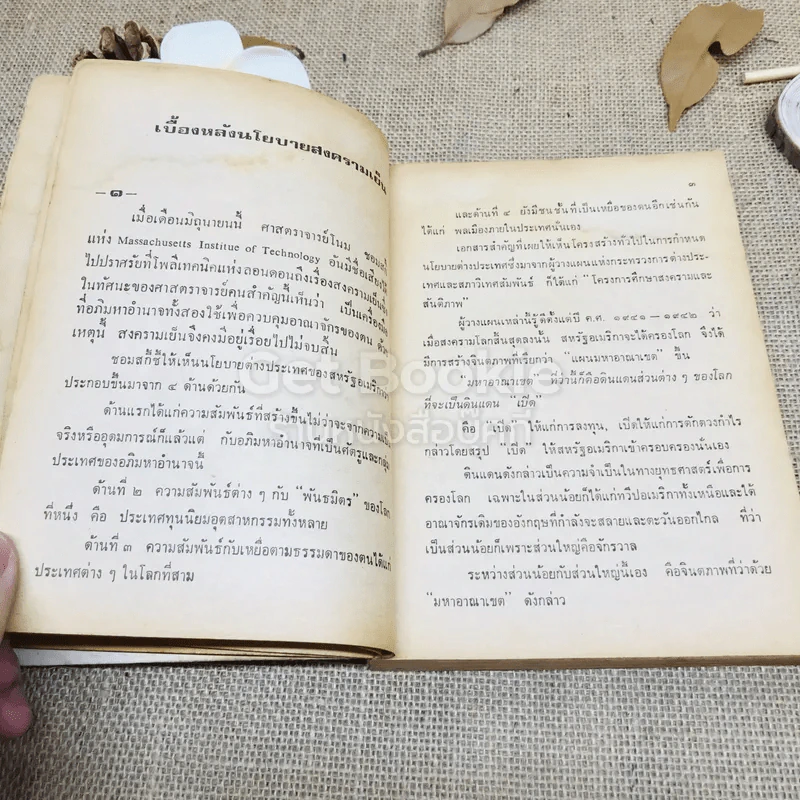 เบื้องหลังนโยบายสงครามเย็น
—๑—
เมื่อเดือนมิถุนายนนี้ ศาสตราจารย์โนม ชอมสกี้
แห่ง Massachusetts Institue of Technology อันมีชื่อเสียง
ไปปราศรัยที่โพลีเทคนิคแห่งลอนดอนถึงเรื่องสงครามเย็น
ในทัศนะของศาสตราจารย์คนสำคัญนี้เห็นว่า เป็นเครื่องมือ
ที่อภิมหาอำนาจทั้งสองใช้เพื่อควบคุมอาณาจักรของตน ด้วย
เหตุนี้ สงครามเย็นจึงคงมีอยู่เรื่อยไปไม่จบสิ้น
ชอมสกี้ชี้ให้เห็นนโยบายต่างประเทศของสหรัฐอเมริกา
ประกอบขึ้นมาจาก ๔ ด้านด้วยกัน
ด้านแรกได้แก่ความสัมพันธ์ที่สร้างขึ้นไม่ว่าจะจากความเป็น
จริงหรืออุดมการณ์ก็แล้วแต่ กับอภิมหาอำนาจที่เป็นศัตรูและกลุ่ม
ประเทศของอภิมหาอำนาจนี้
ด้านที่ ๒ ความสัมพันธ์ต่าง ๆ กับ “พันธมิตร” ของโลก
ที่หนึ่ง คือ ประเทศทุนนิยมอุตสาหกรรมทั้งหลาย
ด้านที่ ๓ ความสัมพันธ์กับเหยื่อตามธรรมดาของตนได้แก่
ประเทศต่าง ๆ ในโลกที่สาม
๓
และด้านที่ ๔ ยังมีชนชั้นที่เป็นเหยื่อของตนอีกเช่นกัน
ได้แก่ พลเมืองภายในประเทศนั่นเอง
เอกสารสำคัญที่เผยให้เห็นโครงสร้างทั่วไปในการกำหนด
นโยบายต่างประเทศซึ่งมาจากผู้วางแผนแห่งกระทรวงการต่างประ-
เทศและสภาวิเทศสัมพันธ์ ก็ได้แก่ “โครงการศึกษาสงครามและ
สันติภาพ”
ผู้วางแผนเหล่านี้รู้ดีตั้งแต่ปี ค.ศ. ๑๙๔๑—๑๙๔๒ ว่า
เมื่อสงครามโลกสิ้นสุดลงนั้น สหรัฐอเมริกาจะได้ครองโลก จึงได้
มีการสร้างจินตภาพที่เรียกว่า “แผนมหาอาณาเขต” ขึ้น
“มหาอาณาเขต” ที่ว่านี้ก็คือดินแดนส่วนต่าง ๆ ของโลก
ที่จะเป็นดินแดน “เปิด”
คือ “เปิด” ให้แก่การลงทุน, เปิดให้แก่การตักตวงกำไร
กล่าวโดยสรุป “เปิด” ให้สหรัฐอเมริกาเข้าครอบครองนั่นเอง
ดินแดนดังกล่าวเป็นความจำเป็นในทางยุทธศาสตร์เพื่อการ
ครองโลก เฉพาะในส่วนน้อยก็ได้แก่ทวีปอเมริกาทั้งเหนือและใต้
อาณาจักรเดิมของอังกฤษที่กำลังจะสลายและตะวันออกไกล ที่ว่า
เป็นส่วนน้อยก็เพราะส่วนใหญ่คือจักรวาล
ระหว่างส่วนน้อยกับส่วนใหญ่นี้เอง คือจินตภาพที่ว่าด้วย
“มหาอาณาเขต” ดังกล่าว
Get Bookie
ร้านหนังสือบุ๊คกี้